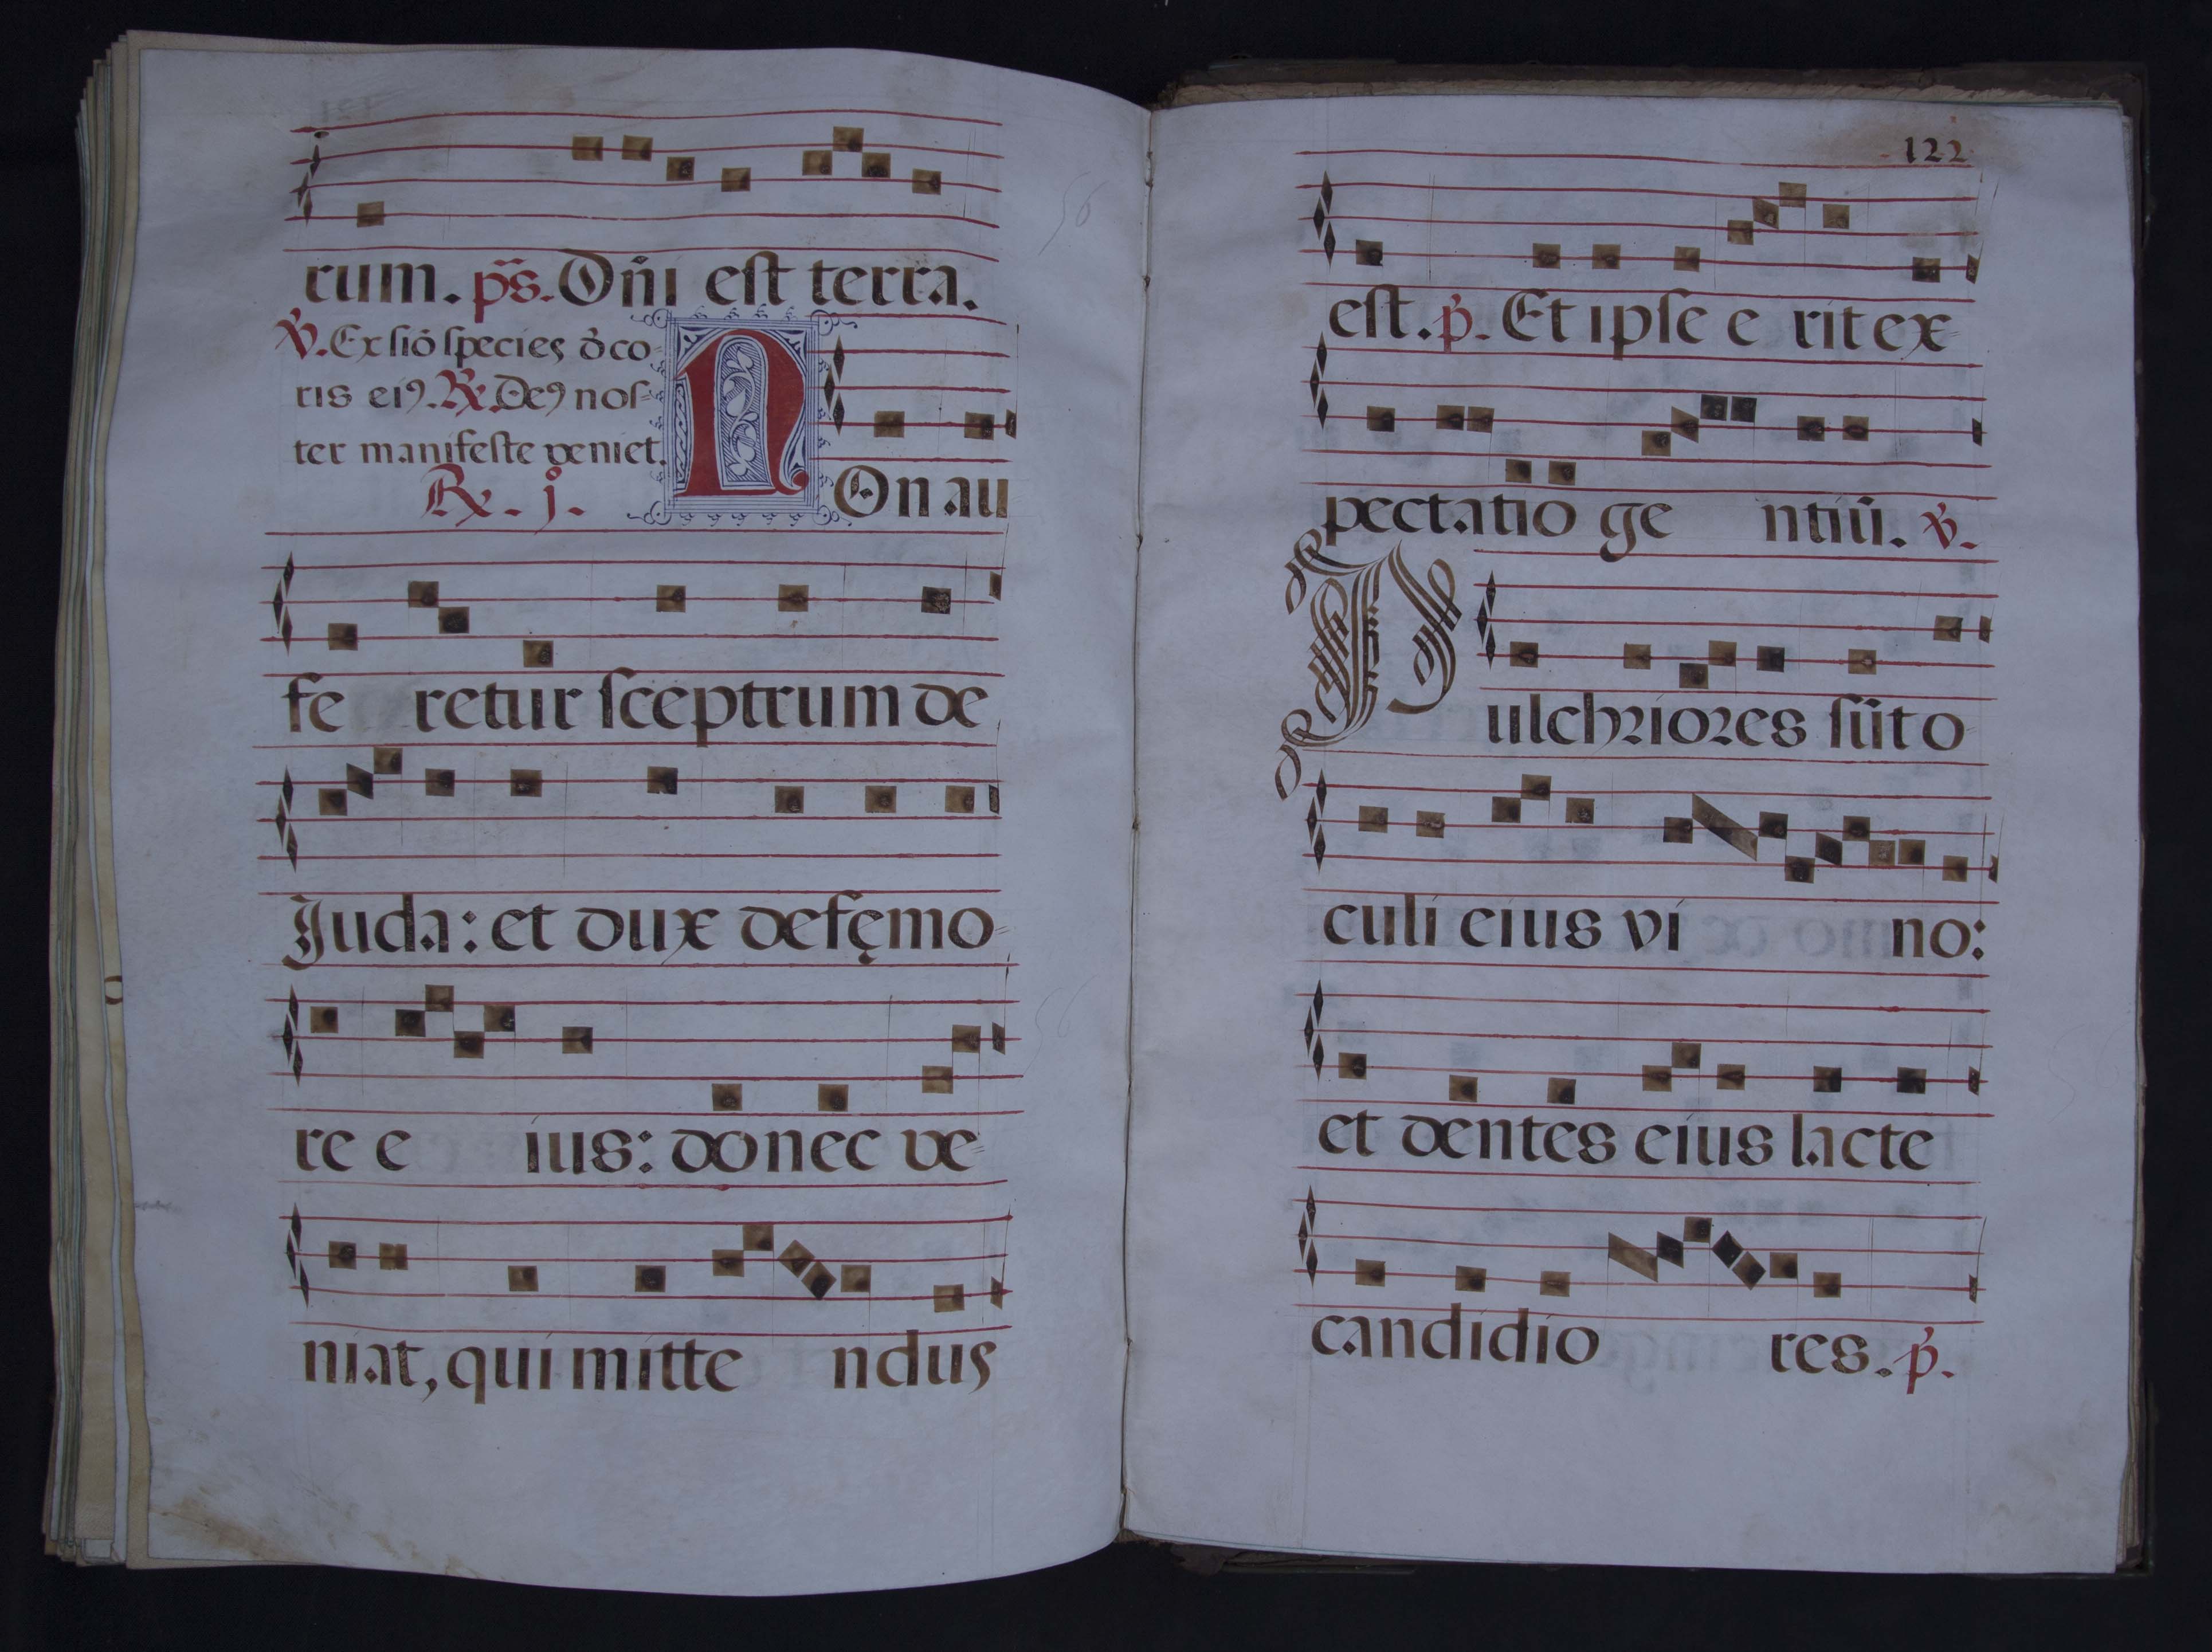 rum. ps̃. Dñi est terra.
℣. Ex siõ species d̉co
ris ei9. ℟. De9 nos-
ter manifeste veniet.
℟. j.
NOn au
fe retur sceptrum de
Juda: et dux de fęmo-
re e ius: donec ve-
niat, qui mitte ndus
122
est. p̉. Et ipse e rit ex-
pectatio ge ntiũ. ℣.
Pulchriores sũt o
culi eius vi no:
et dentes eius lacte
candidio res. p̉.